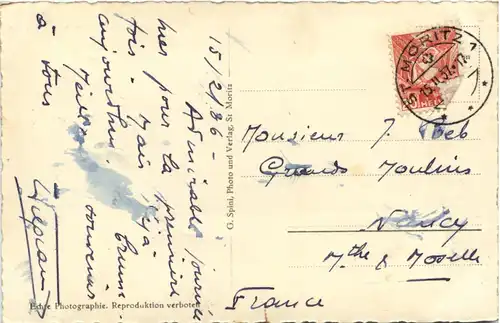 15/2/36 -
Admirable journée
hier pour la première
fois - Mais déjà
aujourd'hui brume
Meilleurs souvenirs
à tous
G. Spini, Photo und Verlag, St Moritz
Echte Photographie. Reproduktion verboten
ST. MORITZ 1
HELVETIA
Monsieur J
Grands Moulins
Nancy
Mthe & Moselle
France